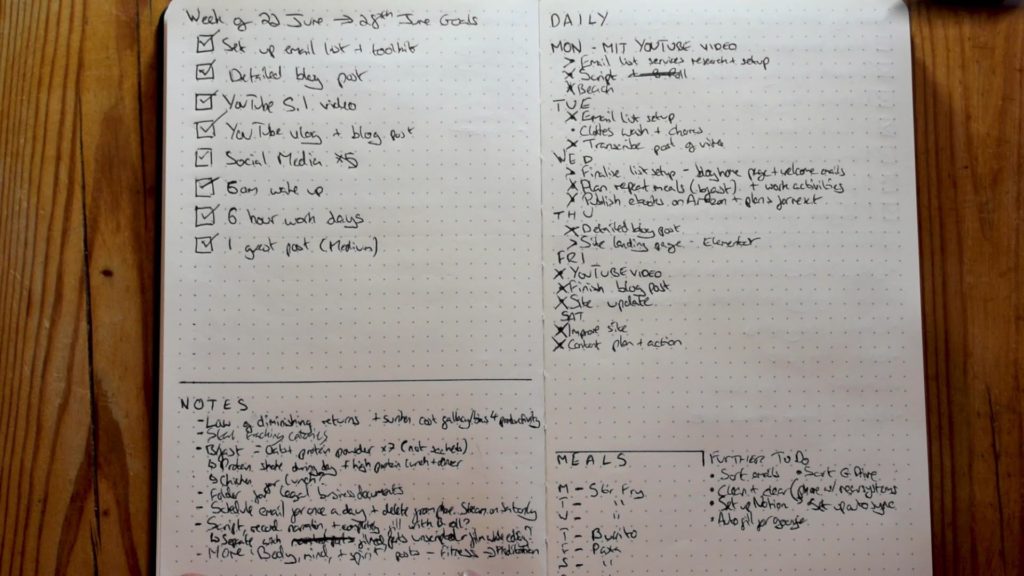 Week of 22 June → 28th June Goals
Set up email list + toolkit
Detailed blog post
YouTube S.I video
YouTube vlog + blog post
Social Media x5
6am wake up
6 hour work days
1 great post (Medium)
NOTES
- Law of diminishing returns + sunken cost fallacy/bias 4 productivity
- Start tracking calories
- Bfast = Oats + protein powder x7 (not sachets)
↳ Protein shake during day + high protein lunch + dinner
↳ Chicken for lunch?
- Folder for legal business documents
- Schedule email for once a day + delete from phone.
- Script, record narration, + computer, fill with B roll?
↳ Separate with filmed parts unscripted
- More 'Body, mind, + spirit' posts - Fitness → Meditation
DAILY
MON - MIT YOUTUBE VIDEO
> Email list services research + setup
x Script
x Beach
TUE
x Email list setup
• Clothes wash + chores
x Transcribe post of
WED
> Finalise list setup - blog home page + welcome emails
x Plan repeat meals (bfast) + work activities
x Publish ebooks on Amazon + plans for next
THU
x Detailed blog post
> Site landing page - Elementor
FRI
x YOUTUBE VIDEO
x Finish blog post
x Site update
SAT
x Improve site
x Content plan + action
MEALS
M - Stir Fry
T - "
W - "
T - Burrito
F - Pasta
S - "
S -
FURTHER TO DO
• Sort emails • Sort G Drive
• Clean + clear (phone w/ new systems
• Set up Notion • Set up auto sync
• Autopill